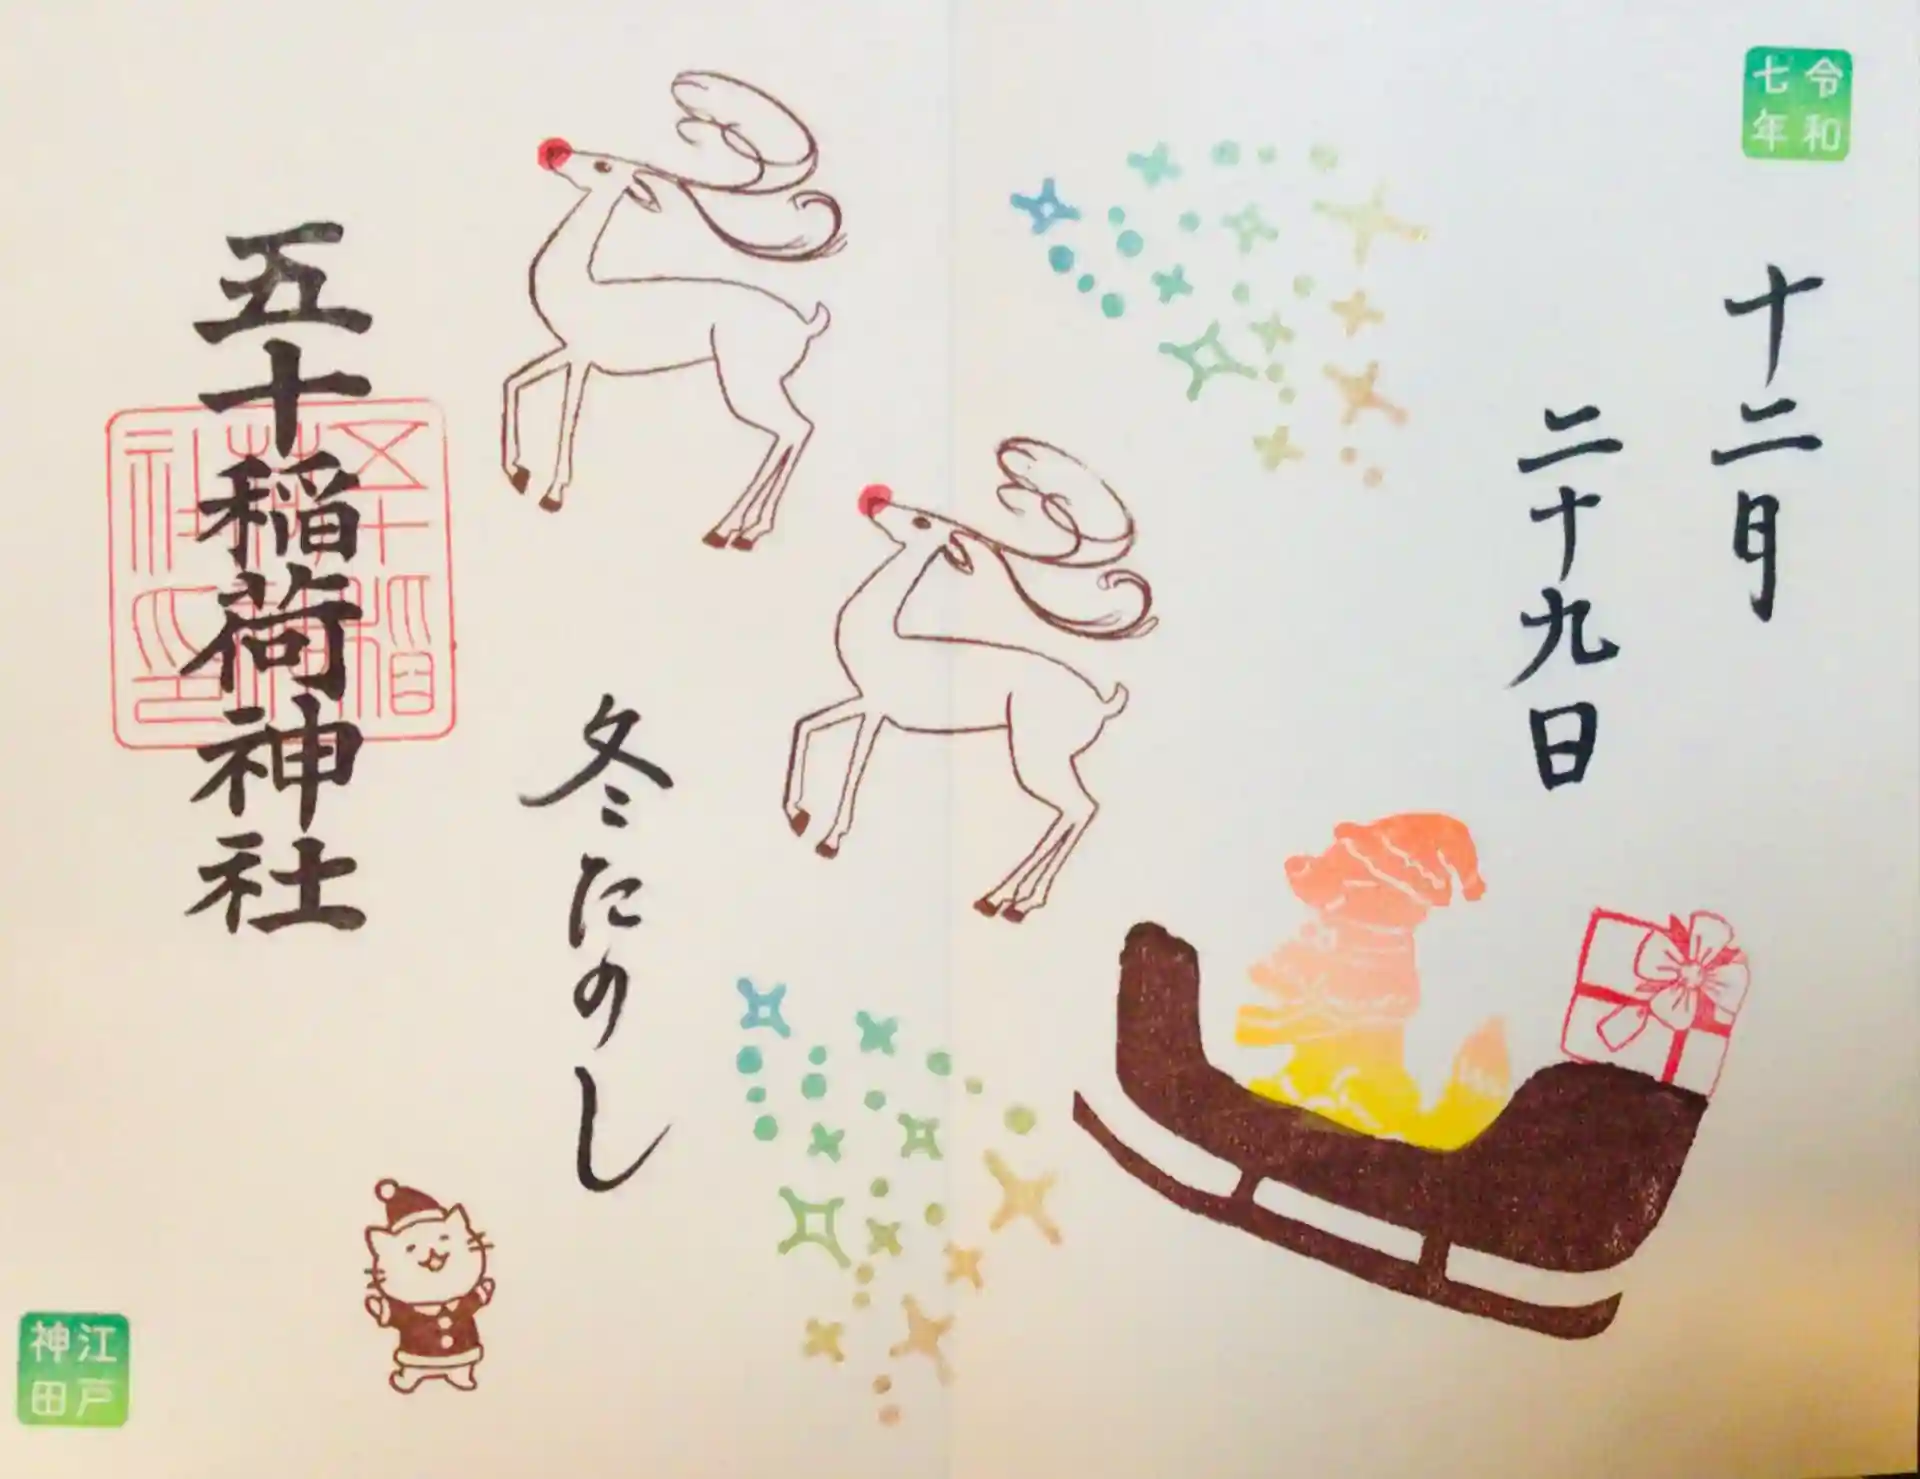 令和
七年
十二月
二十九日
冬たのし
五十稲荷神社
五十稲
荷神
社印
江戸
神田